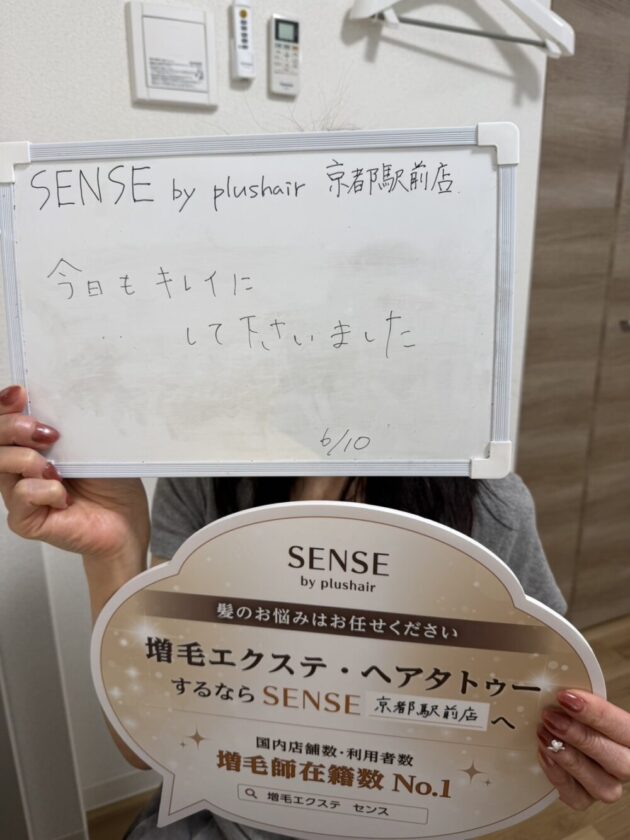 SENSE by plushair 京都駅前店
今日もキレイに
して下さいました
6/10
SENSE
by plushair
髪のお悩みはお任せください
増毛エクステ・ヘアタトゥー
するなら SENSE 京都駅前店 へ
国内店舗数・利用者数
増毛師在籍数 No.1
増毛エクステ センス